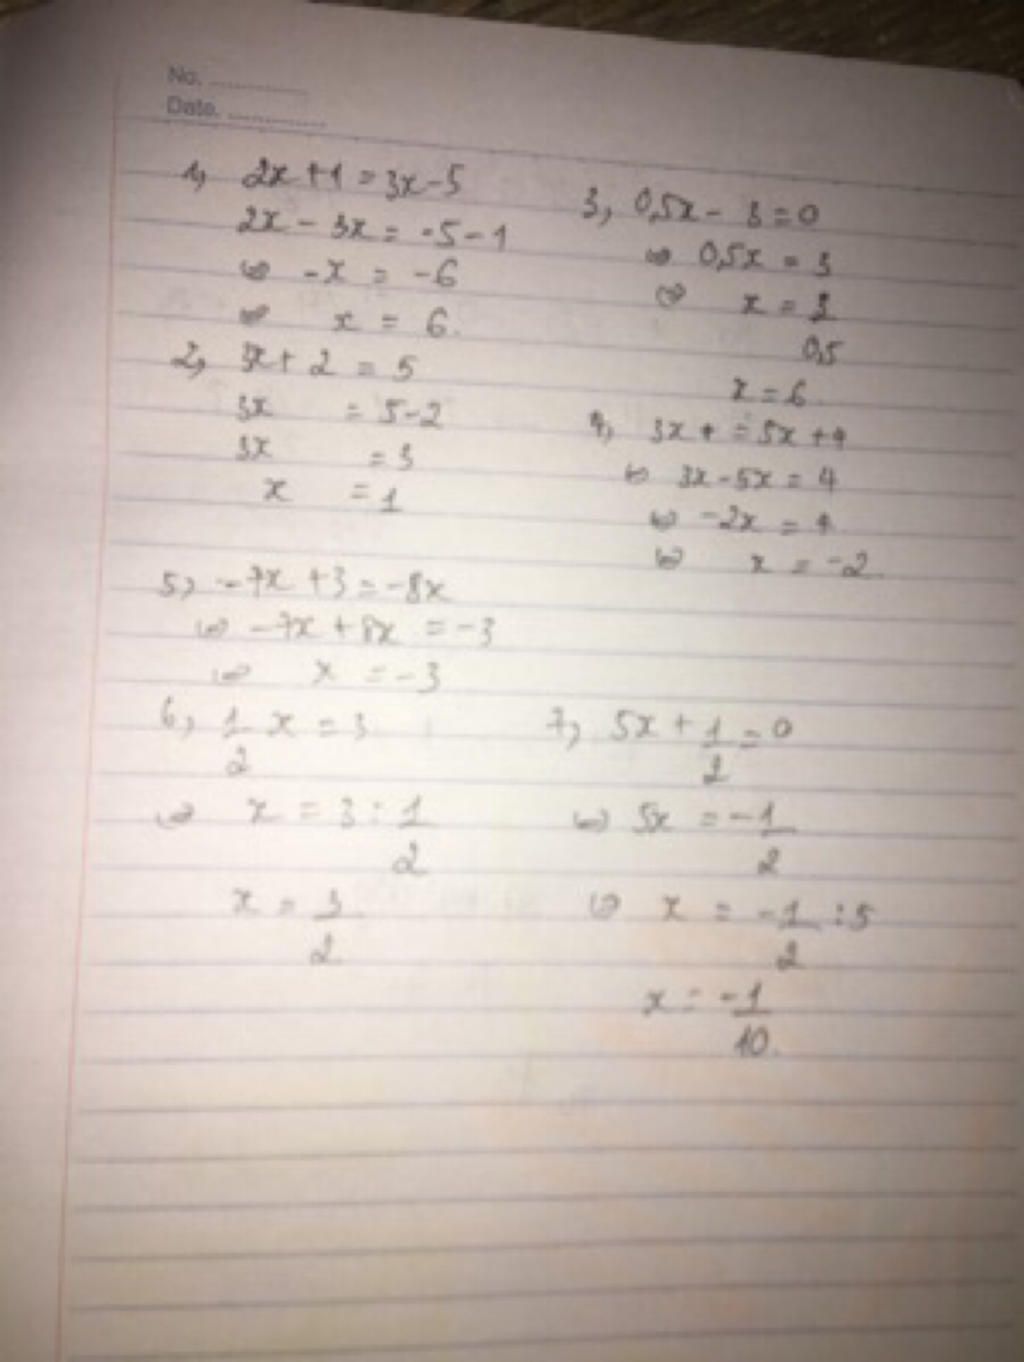 No. ............
Date. ............
1, 2x + 1 = 3x - 5
2x - 3x = -5 - 1
⇔ -x = -6
⇔ x = 6.
2, 3x + 2 = 5
3x = 5 - 2
3x = 3
x = 1
3, 0,5x - 3 = 0
⇔ 0,5x = 3
⇔ x = 3
0,5
x = 6
4, 3x + = 5x + 4
⇔ 3x - 5x = 4
⇔ -2x = 4
⇔ x = -2.
5, -7x + 3 = -8x
⇔ -7x + 8x = -3
⇔ x = -3
6, 1/2 x = 3
⇔ x = 3 : 1/2
x = 3/2
7, 5x + 1/2 = 0
⇔ 5x = -1/2
⇔ x = -1/2 : 5
x = -1/10.